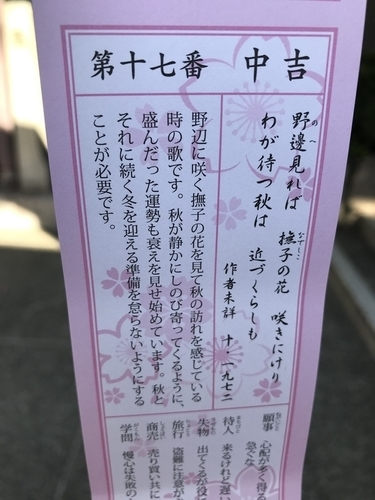 第十七番 中吉
野邊見れば 撫子の花 咲きにけり
わが待つ秋は 近づくらしも
作者未詳 十・一九七二
野辺に咲く撫子の花を見て秋の訪れを感じている
時の歌です。秋が静かにしのび寄ってくるように、
盛んだった運勢も衰えを見せ始めています。秋と
それに続く冬を迎える準備を怠らないようにする
ことが必要です。
願事 心配が多く得
急ぐな
待人 来るけれど遅
失物 出てくるが役
旅行 盗難に注意が
商売 売り買いも
学問 慢心は失敗の